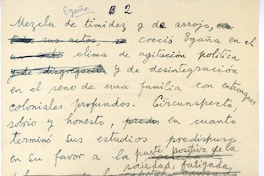 Egaña
B 2
Mezcla de timidez y de arrojo,
todo sus actos creció Egaña en el
clima de agitación política
y de desintegración
en el seno de una familia con
coloniales profundos. Circunspecto,
sobrio y honesto, en cuanto
terminó sus estudios predispuso
en su favor a la parte positiva de la
sociedad, fatigada